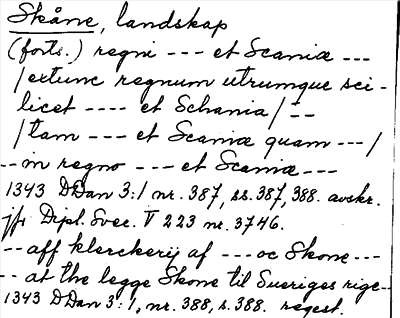 Skåne, landskap
(forts.) regni --- et Scaniæ ---
/extunc regnum utrumque sci-
licet ---- et Schania/--
/tam --- et Scaniæ quam ---/
--in regno --- et Scaniæ---
1343 DDan 3:1 nr. 387, ss. 387, 388. avskr.
jfr Dipl. Svec. V 223 nr. 3746.
--aff klerckerij af ---oc Skone---
--at the legge Skone til Sueriges rige--
1343 DDan 3:1, nr. 388, s. 388. regest.